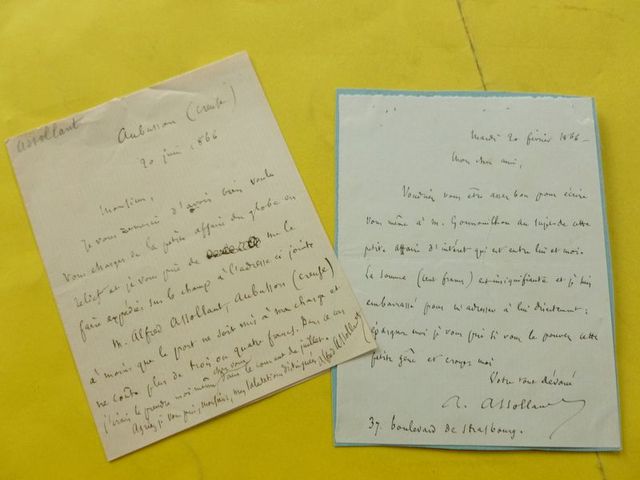 Assollant
Aubusson (Creuse)
20 juin 1866
Monsieur,
Je vous remercie d'avoir bien voulu
vous charger de la petite affaire du globe en
relief et je vous prie de me le
faire expédier sur le champ à l'adresse ci jointe
M. Alfred Assollant, Aubusson (Creuse)
à moins que le port ne soit mis à ma charge et
ne coûte plus de trois ou quatre francs. Dans ce cas
j'irais le prendre moi même chez vous dans le courant de juillet.
Agréez je vous prie, Monsieur, mes salutations distinguées
Alfred Assollant
Mardi 20 février 1866 -
Mon cher ami,
Voudriez vous être assez bon pour écrire
vous même à M. Gounouilhou au sujet de cette
petite affaire d'intérêt qui est entre lui et moi.
La somme (cent francs) est insignifiante et je suis
embarrassé pour m'adresser à lui directement :
épargnez moi je vous prie si vous le pouvez cette
petite gêne et croyez moi
Votre tout dévoué
A. Assollant
37. boulevard de Strasbourg.